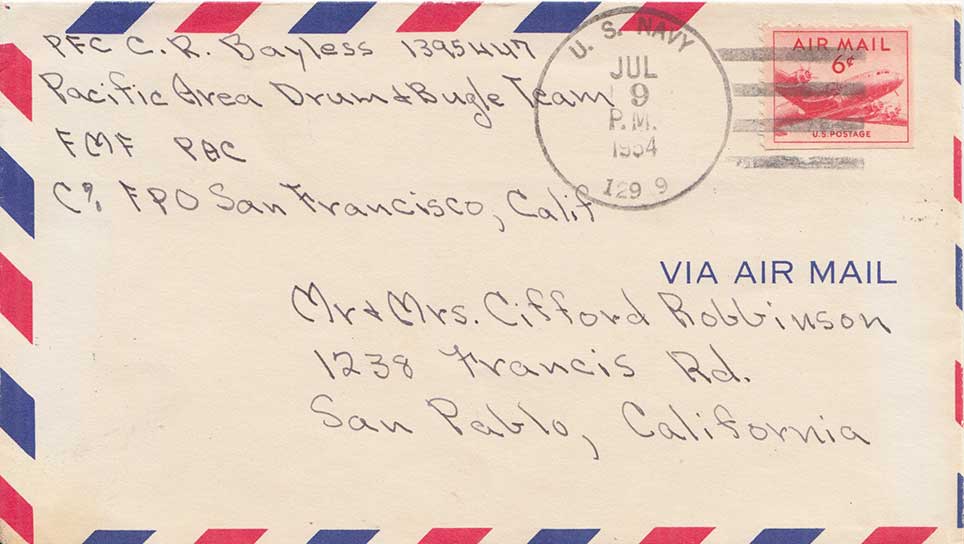 PFC C. R. Bayless 1395447
Pacific Area Drum & Bugle Team
FMF PAC
C/o FPO San Francisco, Calif
U. S. NAVY
JUL
9
P.M.
1954
129 9
AIR MAIL
6¢
U.S. POSTAGE
VIA AIR MAIL
Mr & Mrs. Cifford Robbinson
1238 Francis Rd.
San Pablo, California